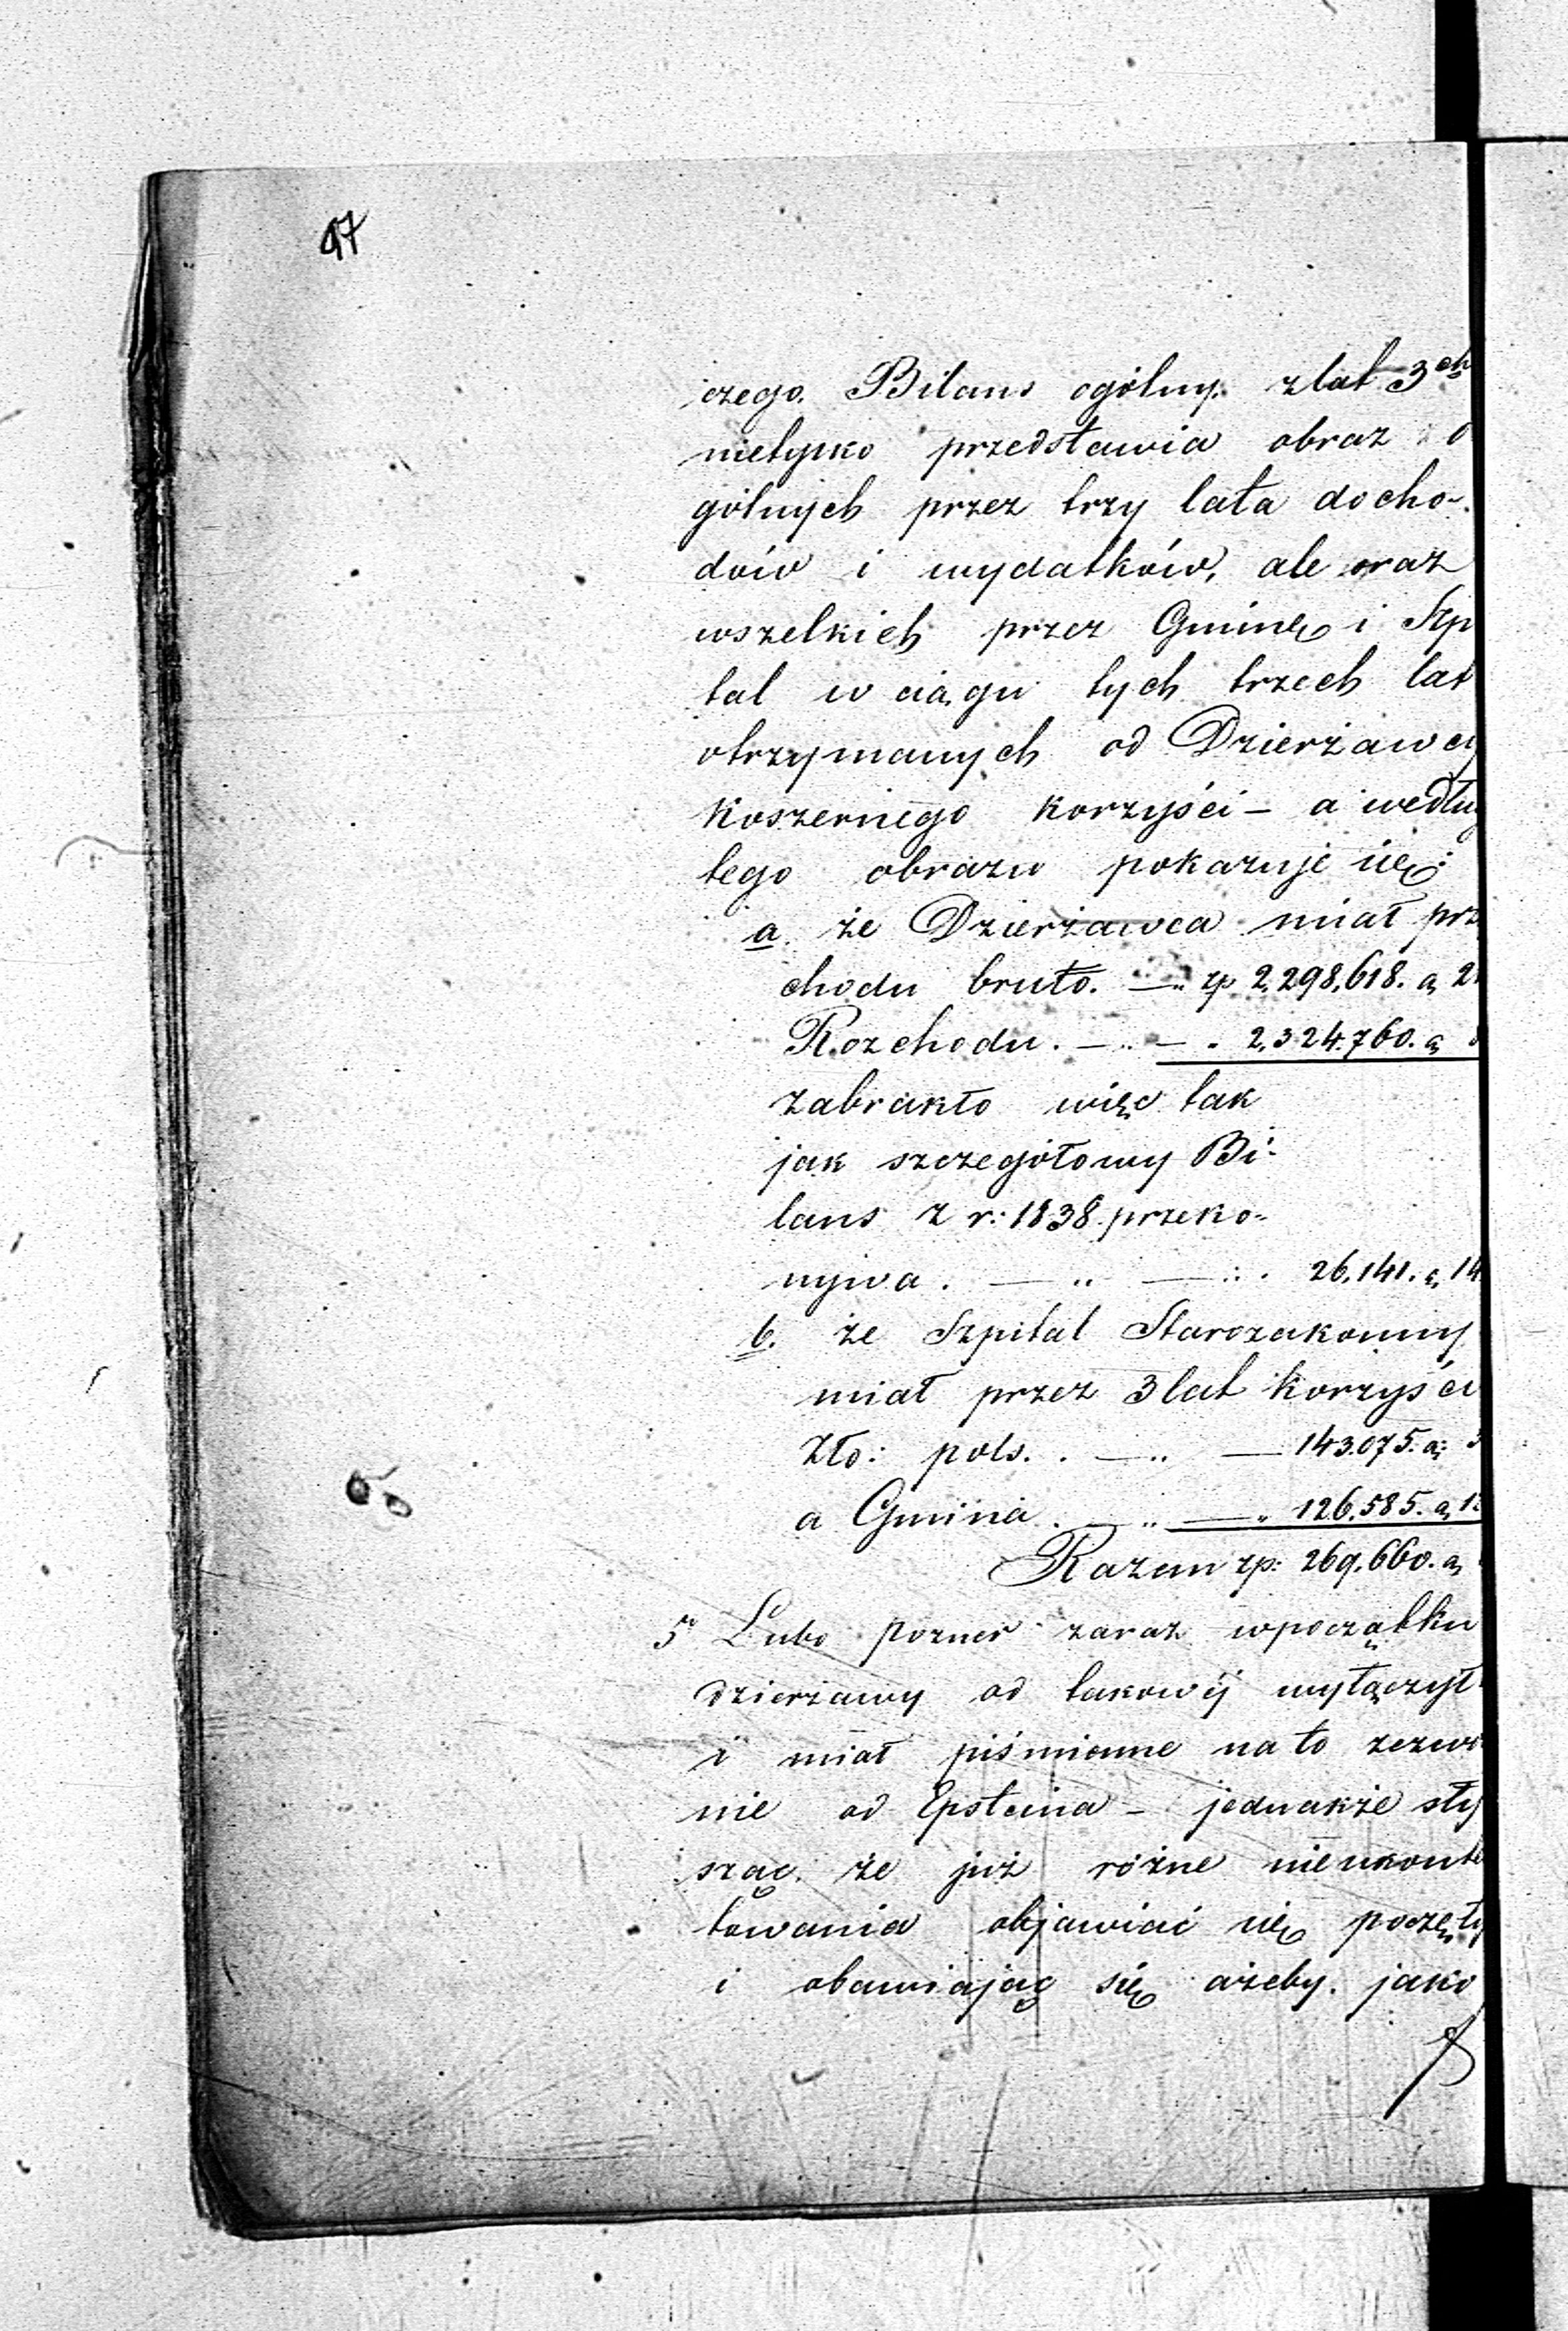 97
czego. Bilans ogólny. z lat 3ch
nietylko przedstawia obraz o
gólnych przez trzy lata docho-
dów i wydatków, ale oraz
wszelkich przez Gminę i Szp
tal w ciągu tych trzech lat
otrzymanych od Dzierżawcy
Koszernego korzyści – a według
tego obrazu pokazuje się:
a. że Dzierżawca miał prz
chodu bruto. — " zp 2,298,618. g 2
Rozchodu. — " — " 2,324,760. g
zabrakło więc tak
jak szczegółowy Bi-
lans z r: 1838. przeko-
nywa. — " — : . 26,141. g, 14
b. że Szpital Starozakonny
miał przez 3 lat korzyści
Zło: pols. . — " — 143.075. g:
a Gmina . — " — " 126,585. g, 1
Razem zp: 269.660. g,
5 Lubo pozner zaraz w początku
dzierżawy od takowéj wyłączył
i miał piśmienne na to zezwo
nie od Epsteina – jednakże sły
sząc, że już różne nieukonte
towania objawiać się poczęły
i obawiając się ażeby. jako